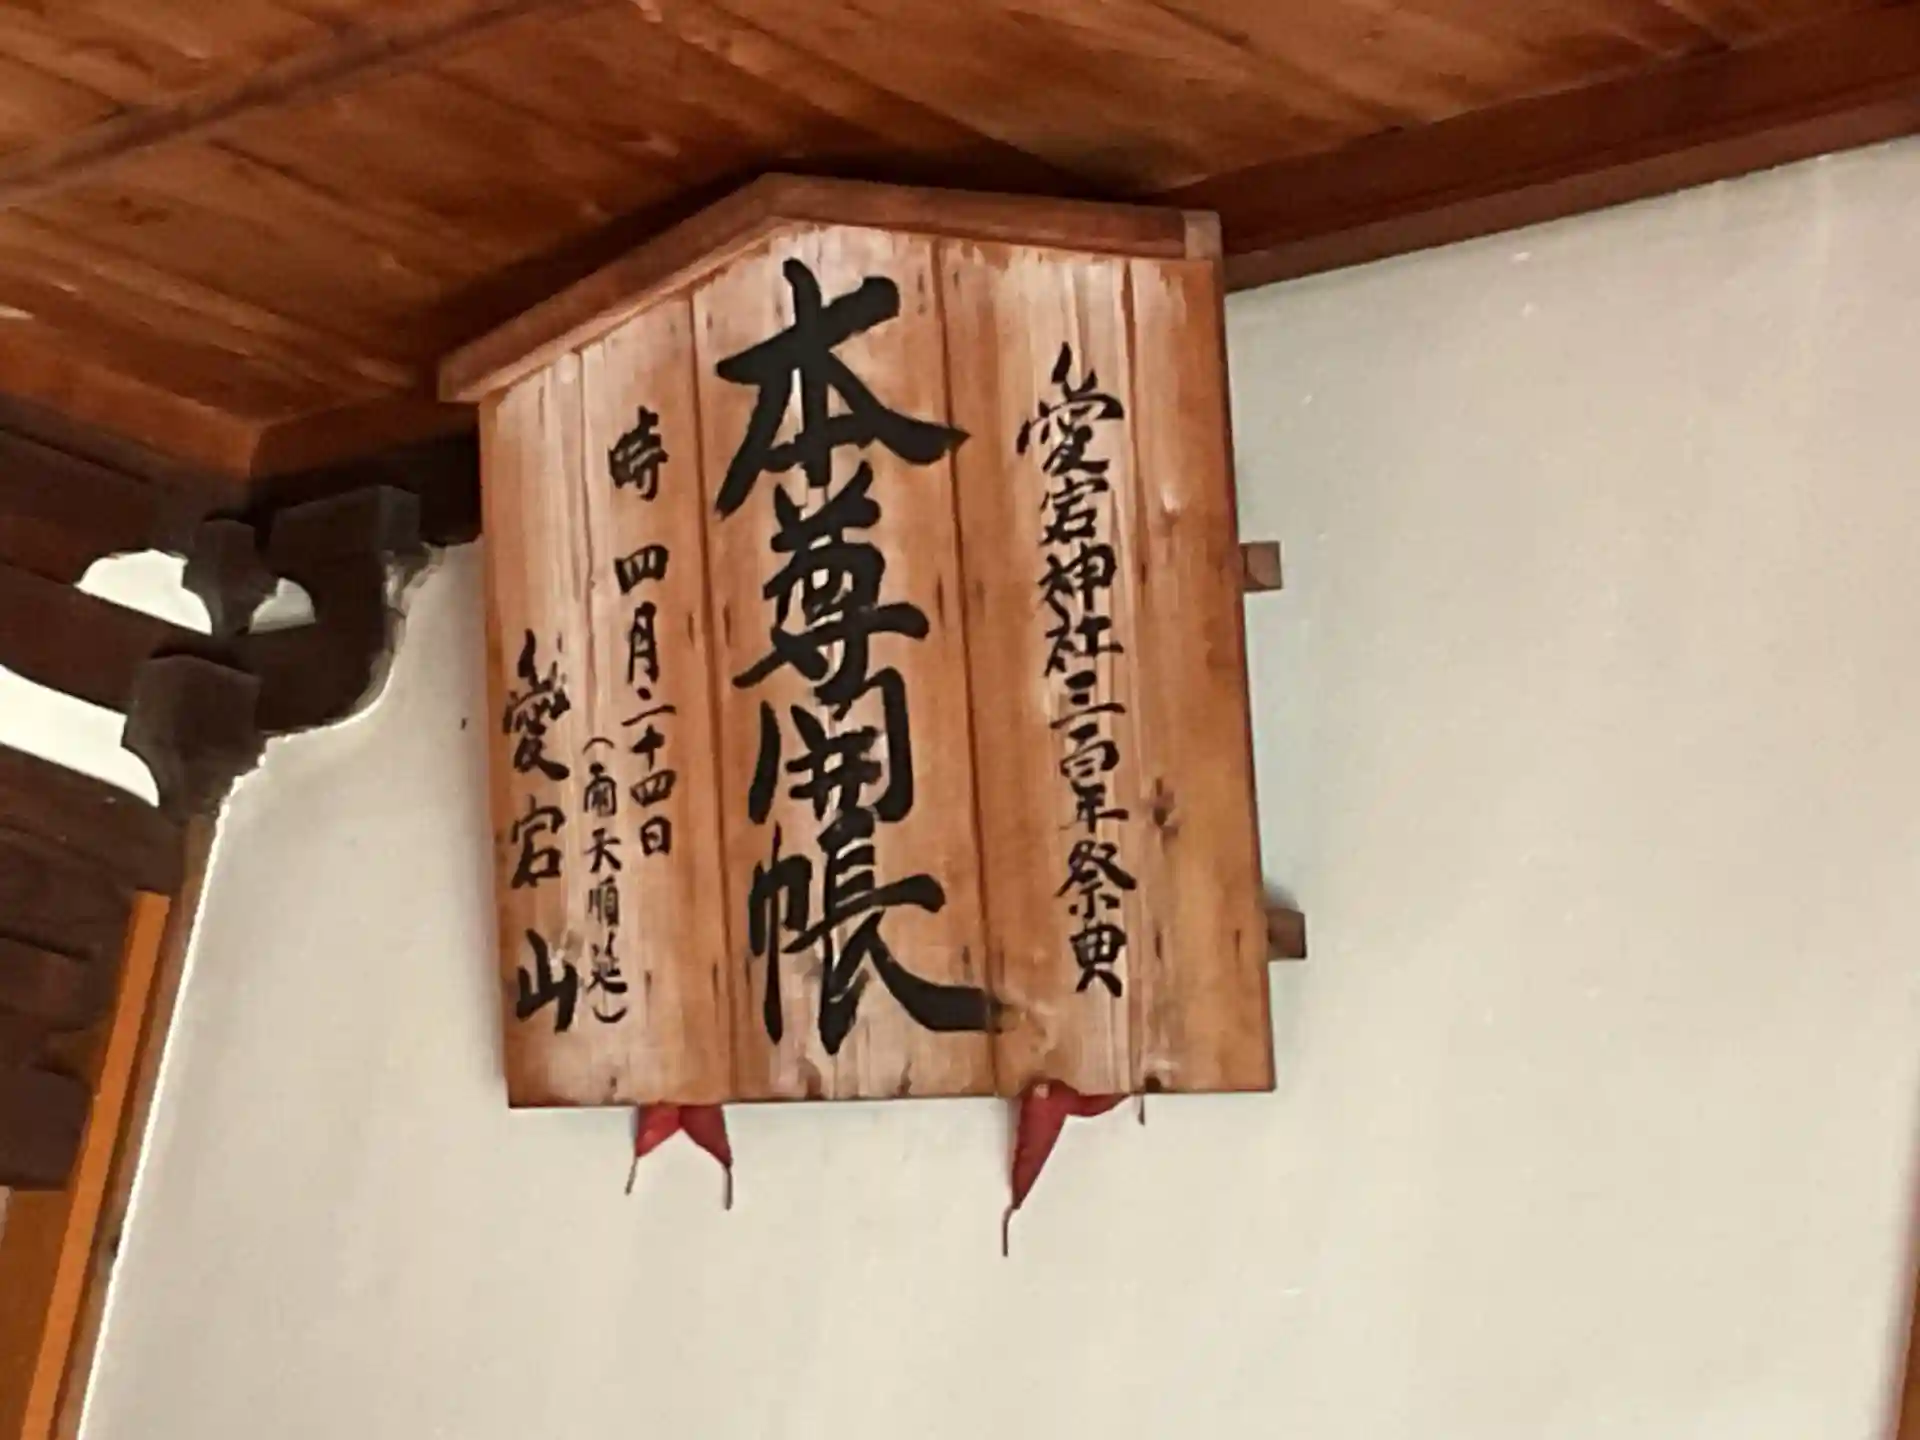 愛宕神社三百年祭典
本尊開帳
時 四月二十四日
（雨天順延）
愛宕山